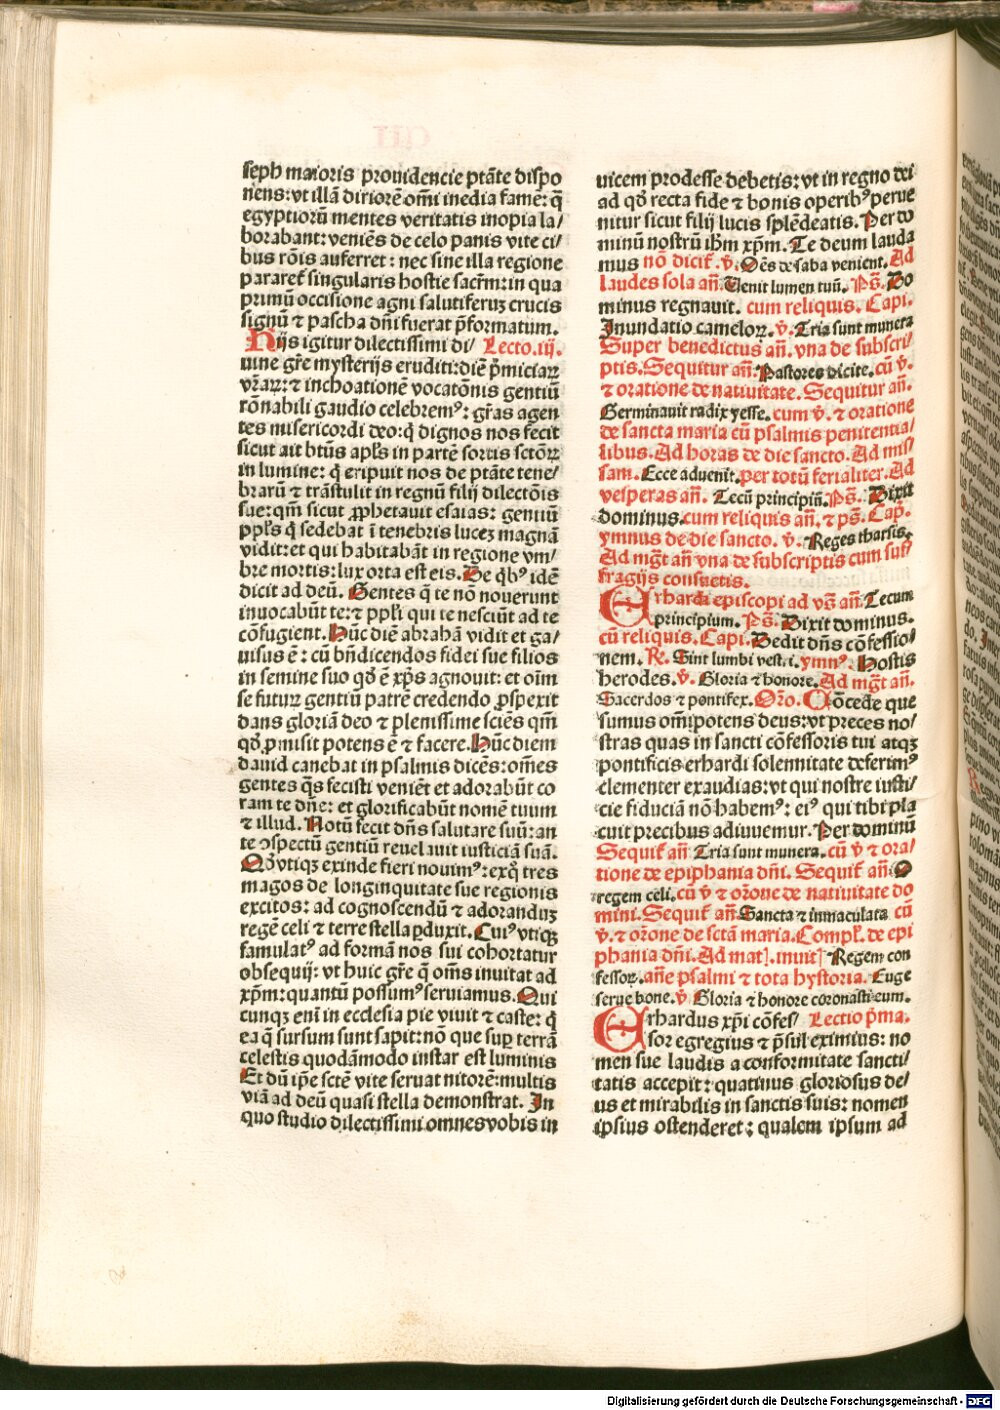 seph maioris prouidencie ptāte dispo
nens: vt illā diriorē om̄i inedia famē: q̄
egyptiorū mentes veritatis inopia la/
borabant: veniēs de celo panis vite ci/
bus rōis auferret: nec sine illa regione
pararet̄ singularis hostie sacr̄m: in qua
primū occisione agni salutiferuꝫ crucis
signū ⁊ pascha dn̄i fuerat p̄formatum.
Hijs igitur dilectissimi di/ Lectō.iij.
uine gr̄e mysterijs eruditi: diē p̄miciaꝝ
vr̄aꝝ: ⁊ inchoationē vocatōnis gentiū
rōnabili gaudio celebremꝰ: gr̄as agen
tes misericordi deo: q̄ dignos nos fecit
sicut ait btūs apl̄s in partē sortis sctōꝝ
in lumine: q̄ eripuit nos de ptāte tene/
brarū ⁊ trāstulit in regnū filij dilectōis
sue: qm̄ sicut ꝓphetauit esaias: gentiū
ppl̄s q̄ sedebat ī tenebris luceꝫ magnā
vidit: et qui habitabāt in regione vm/
bre mortis: lux orta est eis. De qb̄ꝰ idē
dicit ad deū. Gentes q̄ te nō nouerunt
inuocabūt te: ⁊ ppl̄i qui te nesciūt ad te
cōfugient. Hūc diē abrahā vidit et ga/
uisus ē: cū bn̄dicendos fidei sue filios
in semine suo qđ ē xp̄s agnouit: et oīm
se futuꝝ gentiū patrē credendo ꝓspexit
dans gloriā deo ⁊ plenissime sciēs qm̄
qđ ꝓmisit potens ē ⁊ facere. Hūc diem
dauid canebat in psalmis dicēs: om̄es
gentes q̄s fecisti veniēt et adorabūt co
ram te dn̄e: et glorificabūt nomē tuum
⁊ illud. Notū fecit dn̄s salutare suū: an
te ↄspectū gentiū reuelauit iusticiā suā.
Qđ vtiqꝫ exinde fieri nouimꝰ: exq̊ tres
magos de longinquitate sue regionis
excitos: ad cognoscendū ⁊ adoranduꝫ
regē celi ⁊ terre stella ꝑduxit. Cuiꝰ vtiqꝫ
famulatꝰ ad formā nos sui cohortatur
obsequij: vt huic gr̄e q̄ om̄s inuitat ad
xp̄m: quantū possumꝰ seruiamus. Qui
cunqꝫ eni in ecclesia pie viuit ⁊ caste: q̄
ea q̄ sursum sunt sapit: nō que suꝑ terrā
celestis quodāmodo instar est luminis
Et dū ip̄e sctē vite seruat nitorē: multis
viā ad deū quasi stella demonstrat. In
quo studio dilectissimi omnes vobis in
uicem prodesse debetis: vt in regno dei
ad qđ recta fide ⁊ bonis operibꝰ perue
nitur sicut filij lucis splēdeatis. Per do
minū nostrū ih̄m xp̄m. Te deum lauda
mus nō dicit̄. v̄. Om̄s de saba venient. Ad
laudes sola an̄. Uenit lumen tuū. Ps̄. Do
minus regnauit. cum reliquis. Capi.
Inundatio cameloꝝ. v̄. Tria sunt munera
Super benedictus an̄. vna de subscri/
ptis. Sequitur an̄. Pastores dicite. cū v̄.
⁊ oratione de natiuitate. Sequitur an̄.
Germinauit radix yesse. cum v̄. ⁊ oratione
de sancta maria cū psalmis penitentia/
libus. Ad horas de die sancto. Ad mis/
sam. Ecce aduenit. per totū ferialiter. Ad
vesperas an̄. Tecū principiū. Ps̄. Dixit
dominus. cum reliquis an̄. ⁊ ps̄. Cap̄.
ymnus de die sancto. v̄. Reges tharsis.
Ad mgt̄ an̄ vna de subscriptis cum suf/
fragijs consuetis.
Erhardi episcopi ad vs̄ an̄. Tecum
principium. Ps̄. Dixit dominus.
cū reliquis. Capi. Dedit dn̄s cōfessio/
nem. R̄. Sint lumbi vest. i. ymnꝰ. Hostis
herodes. v̄. Gloria ⁊ honore. Ad mgt̄ an̄.
Sacerdos ⁊ pontifex. Or̄o. Cōcede que
sumus om̄ipotens deus: vt preces no/
stras quas in sancti cōfessoris tui atqꝫ
pontificis erhardi solennitate deferimꝰ
clementer exaudias: vt qui nostre iusti/
cie fiduciā nō habemꝰ: eiꝰ qui tibi pla
cuit precibus adiuuemur. Per dominū
Sequit̄ an̄ Tria sunt munera. cū v̄ ⁊ ora/
tione de epiphania dn̄i. Sequit̄ an̄. O
regem celi. cū v̄ ⁊ or̄one de natiuitate do
mini. Sequit̄ an̄ Sancta ⁊ inmaculata cū
v̄. ⁊ or̄one de sctā maria. Compl̄. de epi
phania dn̄i. Ad mat. inuit Regem con
fessoꝝ. an̄e psalmi ⁊ tota hystoria. Euge
serue bone. v̄ Gloria ⁊ honore coronasti eum.
Erhardus xp̄i cōfes/ Lectio p̄ma.
sor egregius ⁊ p̄sul eximius: no
men sue laudis a conformitate sancti/
tatis accepit: quatinus gloriosus de/
us et mirabilis in sanctis suis: nomen
ipsius ostenderet: qualem ipsum ad
Digitalisierung gefördert durch die Deutsche Forschungsgemeinschaft - DFG